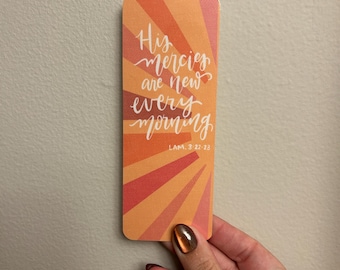 His
mercies
are new
every
morning
LAM. 3:22-23